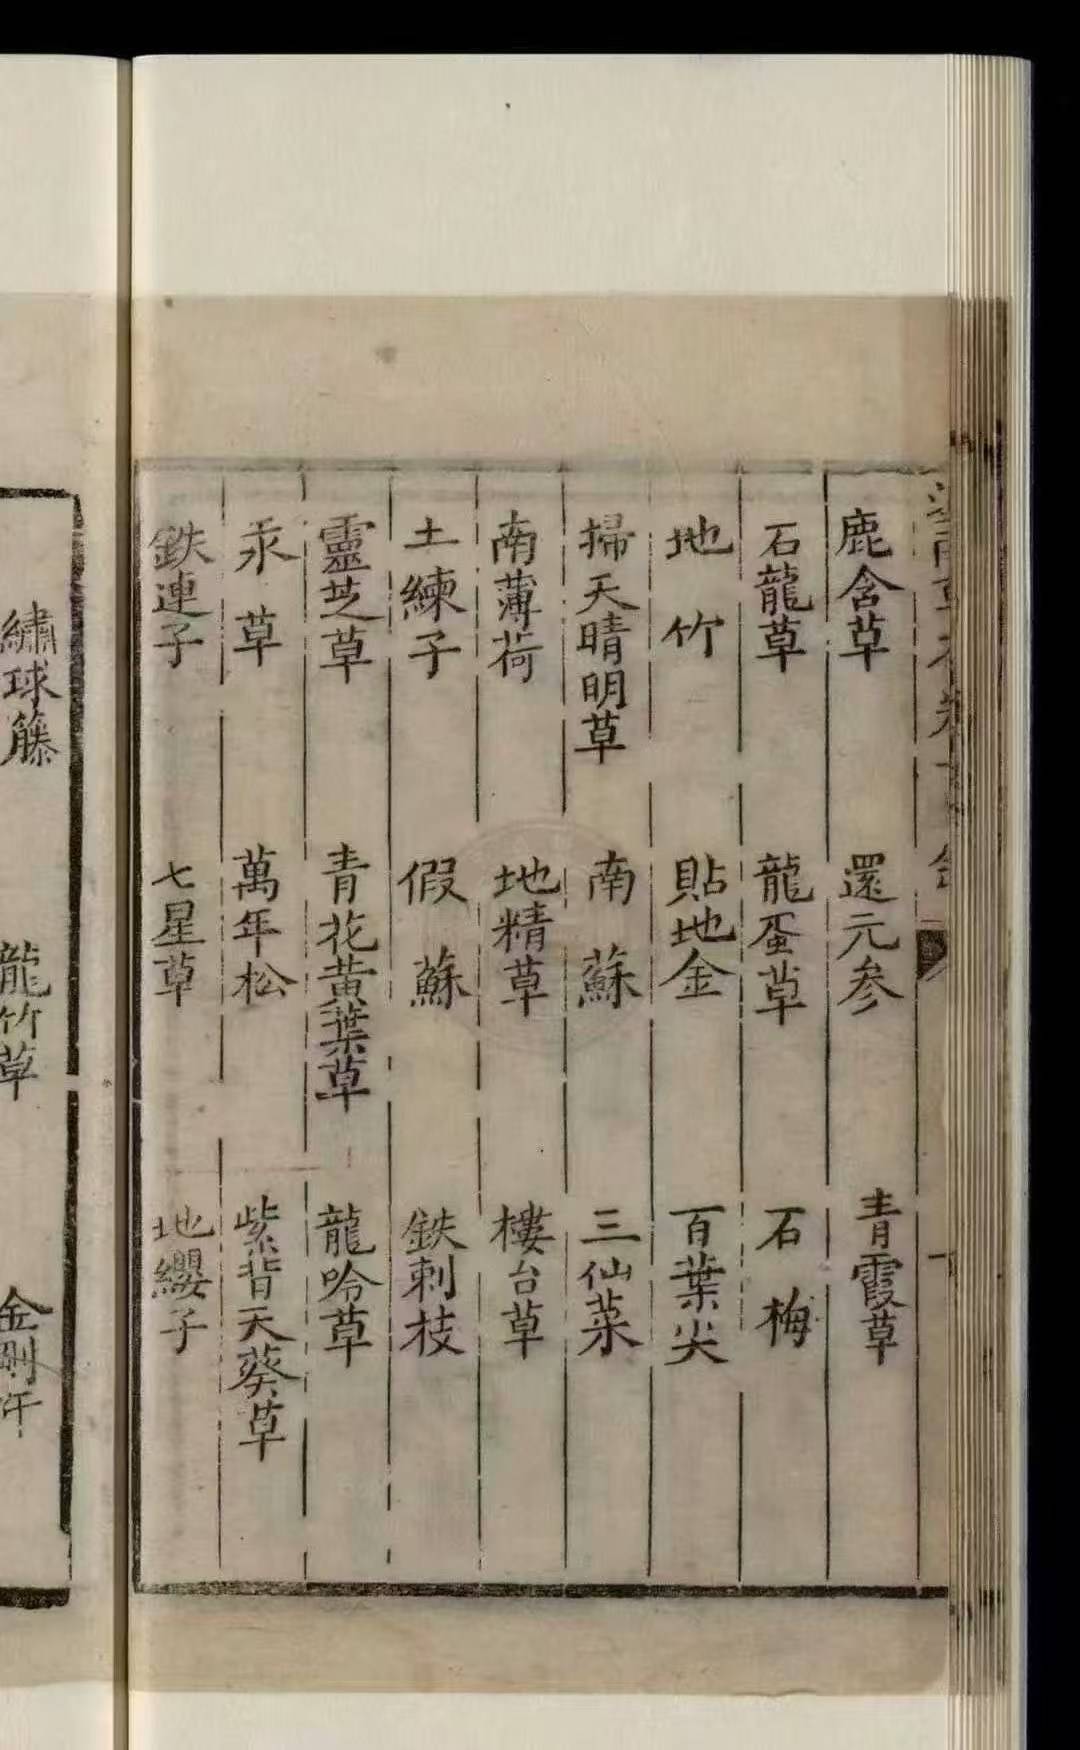 鹿含草　還元参　青霞草
石龍草　龍蛋草　石梅
地竹　貼地金　百葉尖
掃天晴明草　南蘇　三仙菜
南薄荷　地精草　樓台草
土練子　假蘇　鉄刺枝
靈芝草　青花黄葉草　龍吟草
汞草　萬年松　紫背天葵草
鉄連子　七星草　地纓子
繡球籐　龍竹草　金剛